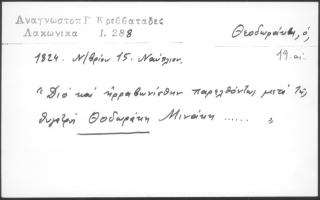 Αναγνωστοπ Γ Κριββαταδες
Λακωνικα 1. 288
Θεοδωράκης, ὁ,
19 αἰ.
1824. Ν/βρίου 15. Ναύπλιον.
" Διό καί ἠρραβωνίσθην παρελθόντως μετά τῆς
θυγατρός Θοδωράκη Μινάκη ...... "